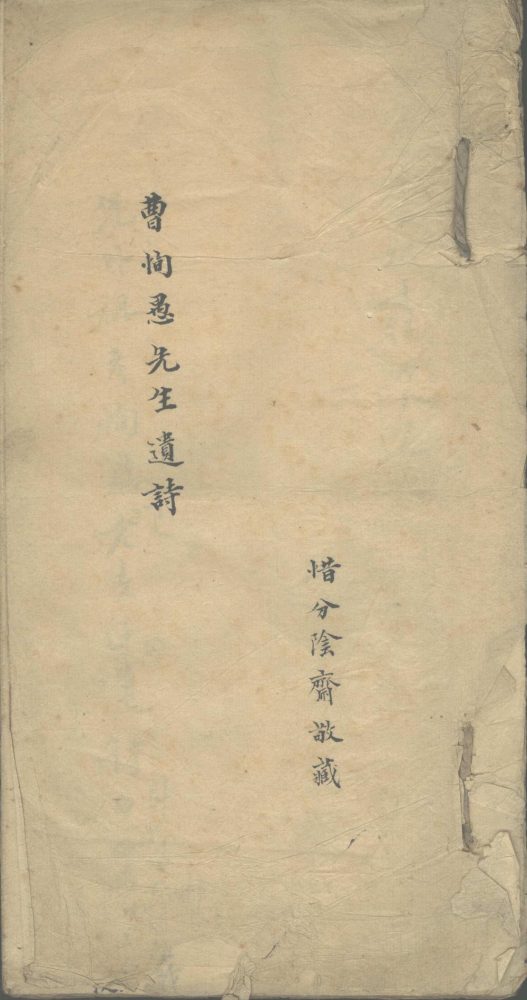 惜分陰齋敬藏
曹恂愚先生遺詩